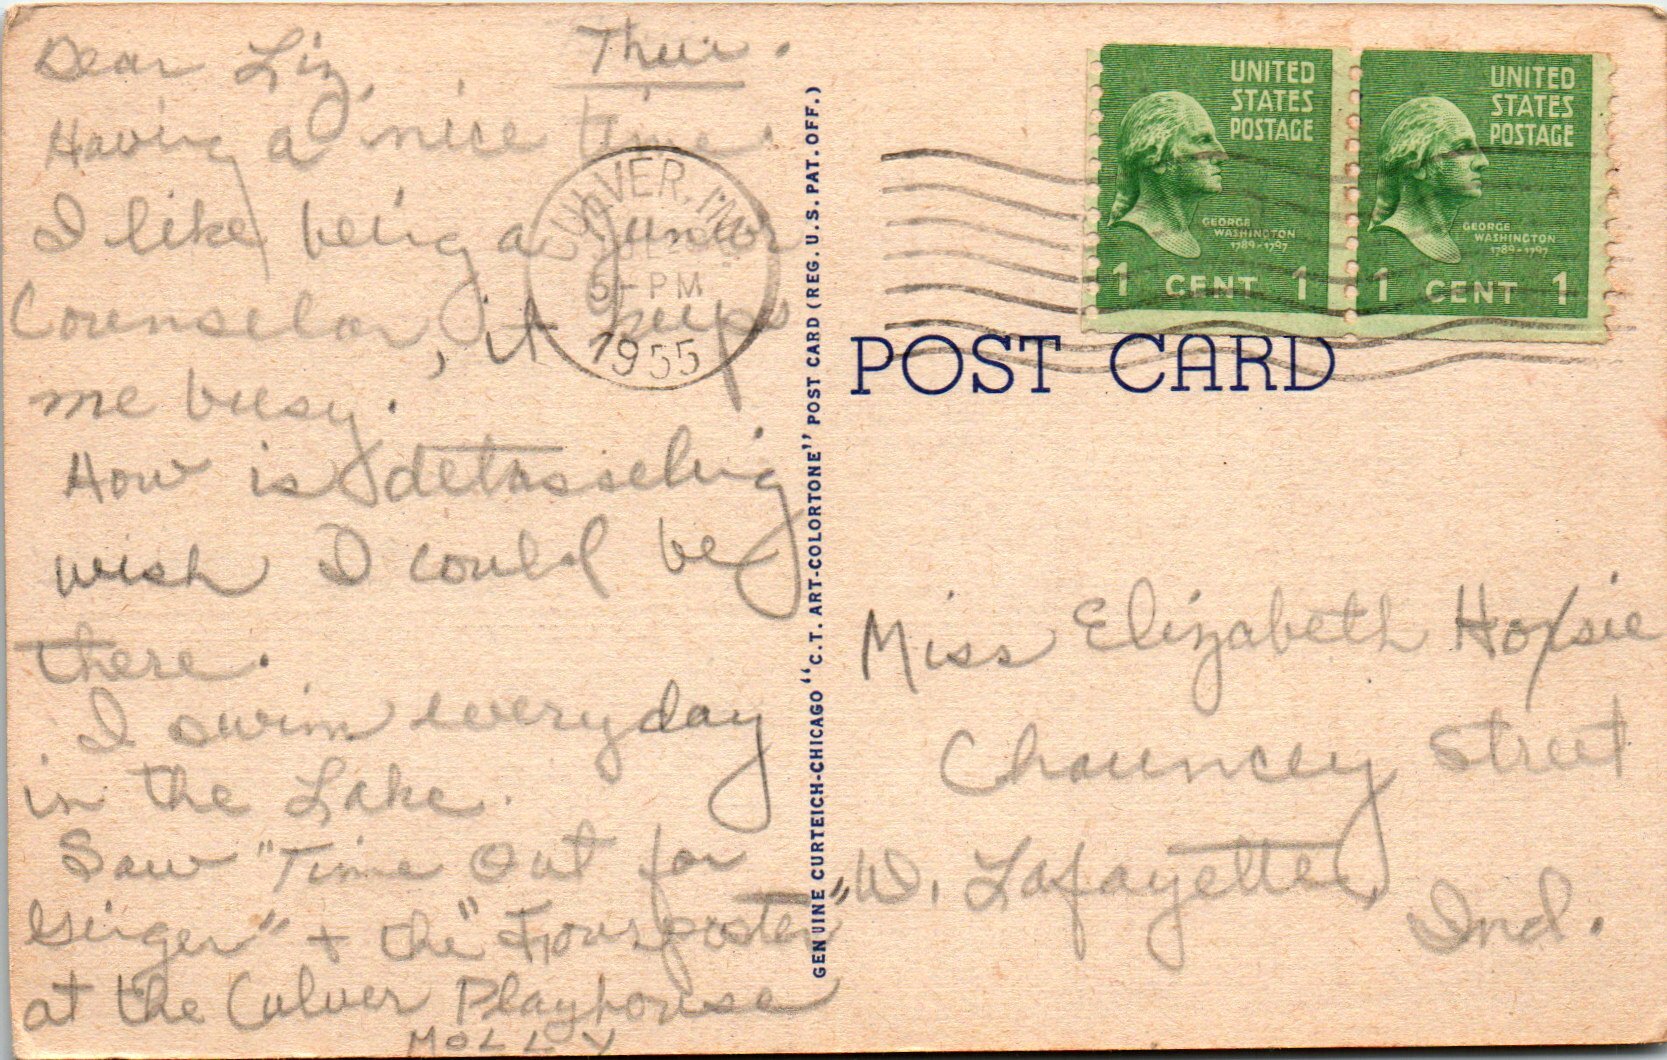 Thur.
Dear Liz,
Having a nice time.
I like being a Junior
Counselor, it keeps
me busy.
How is detasseling
wish I could be
there.
I swim everyday
in the Lake.
Saw "Time Out for
Ginger" + the "Fourposter"
at the Culver Playhouse
MOLLY
CULVER, IND.
5 - PM
1955
GENUINE CURTEICH-CHICAGO "C.T. ART-COLORTONE" POST CARD (REG. U.S. PAT. OFF.)
UNITED
STATES
POSTAGE
GEORGE
WASHINGTON
1789-1797
1 CENT 1
UNITED
STATES
POSTAGE
GEORGE
WASHINGTON
1789-1797
1 CENT 1
POST CARD
Miss Elizabeth Hoxsie
Chauncey Street
W. Lafayette,
Ind.